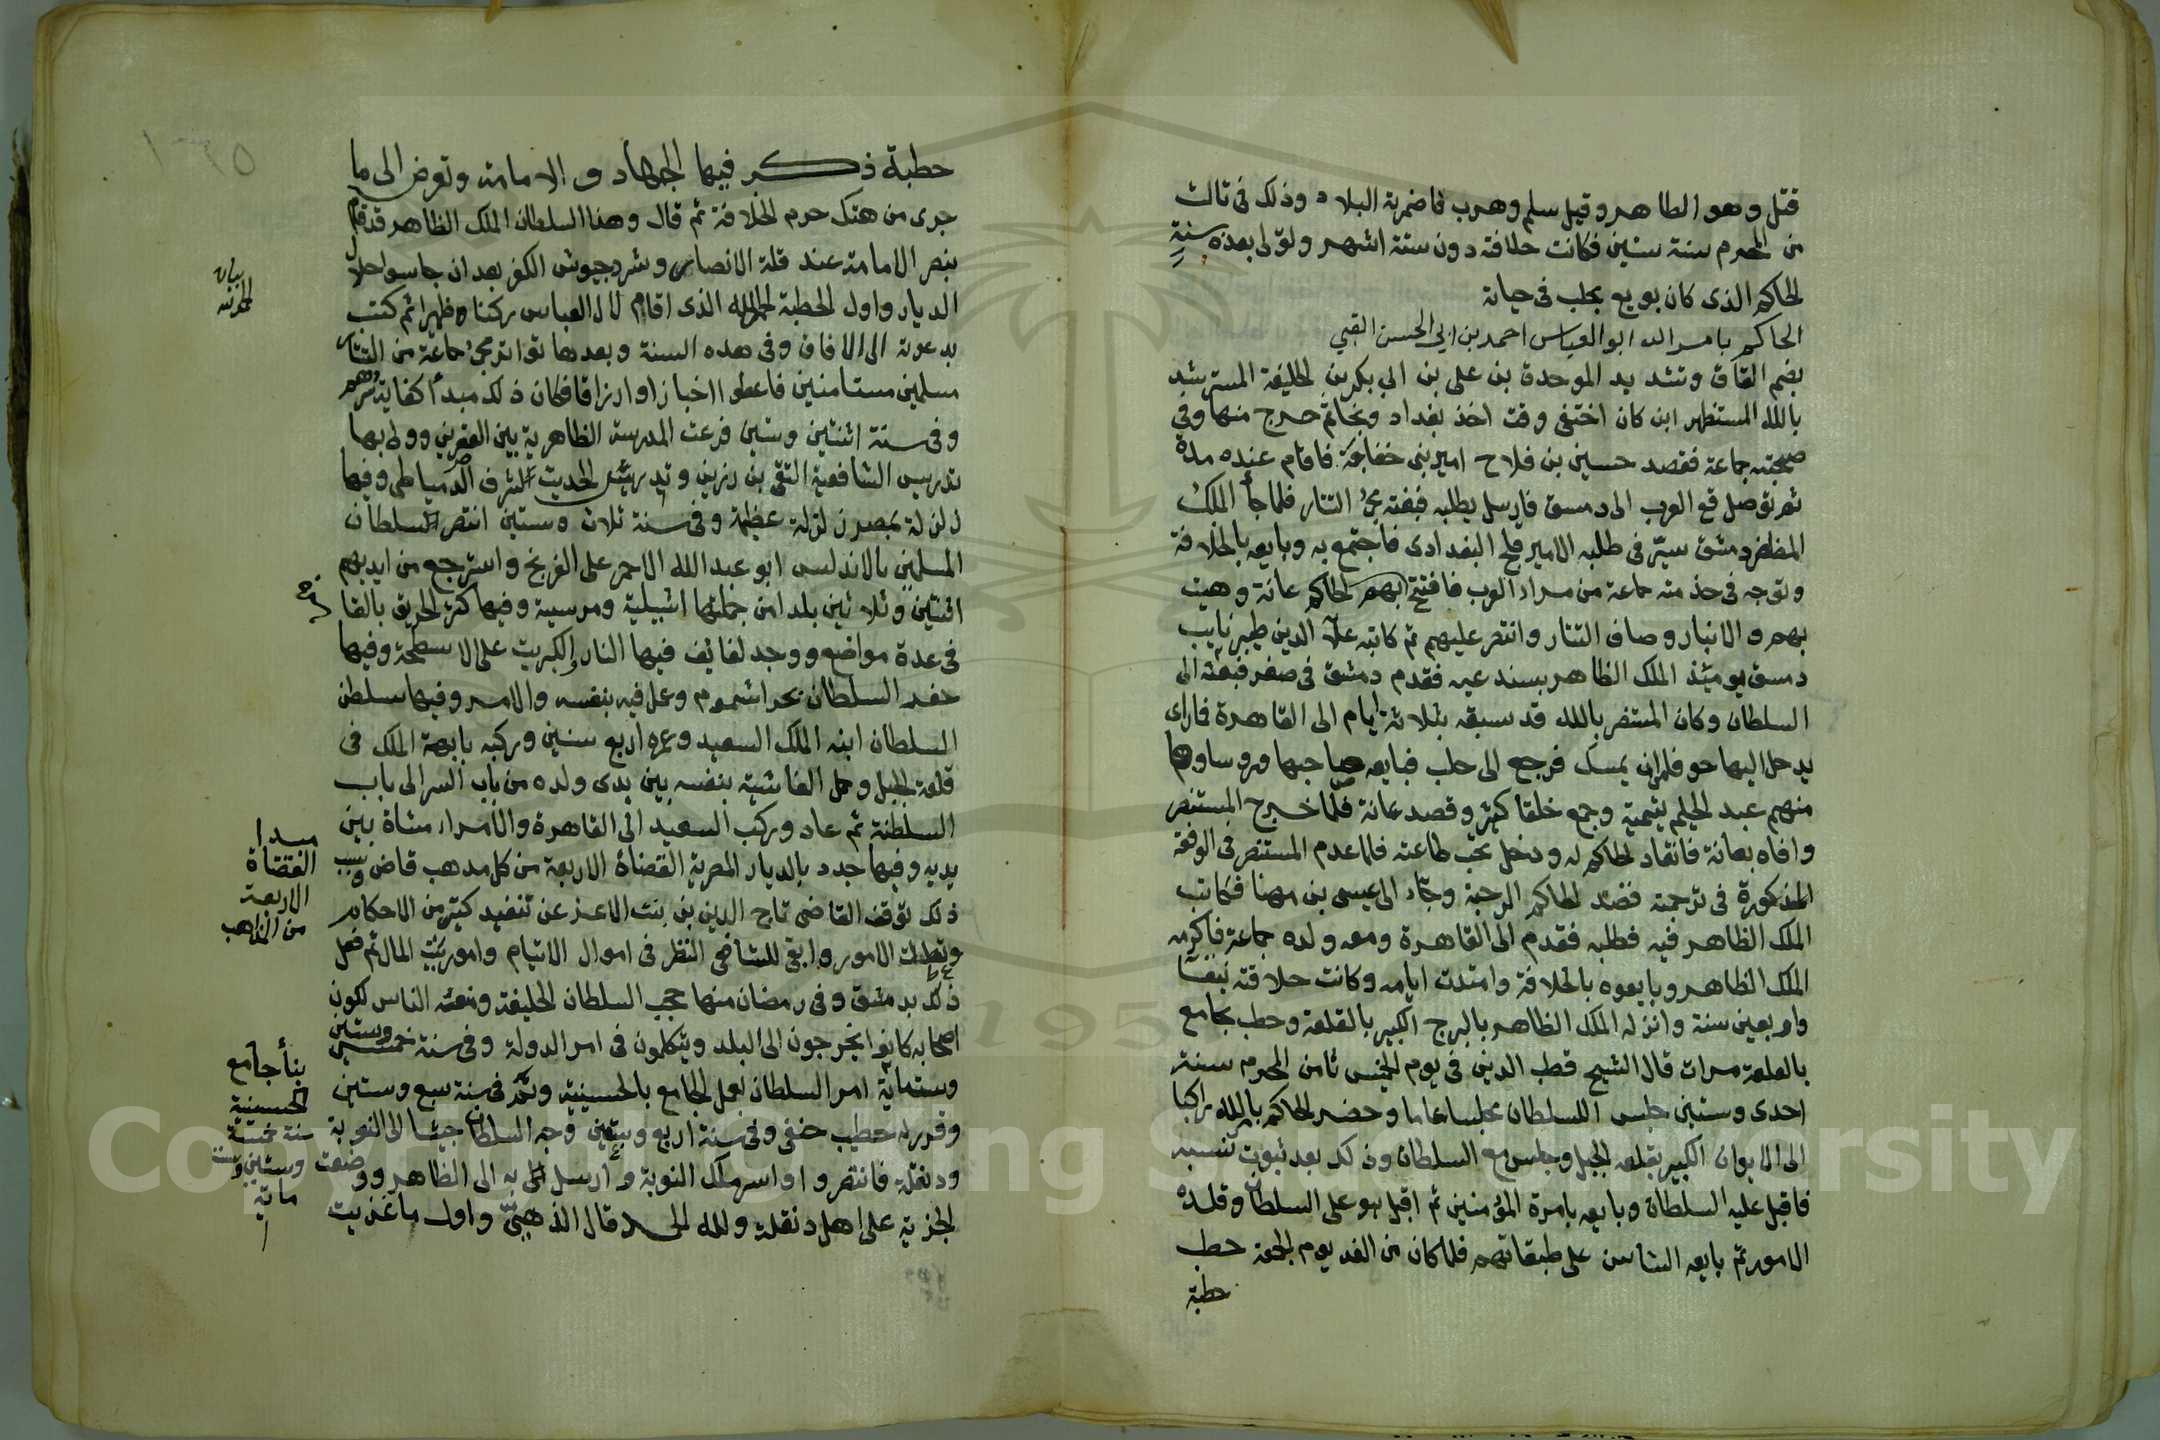 قتل وهو الظاهر وقيل سلم وهرب فاضمرته البلاد وذلك في ثالث
من المحرم سنة ستين فكانت خلافته دون ستة اشهر وتولى بعده سنة
الحاكم الذى كان بويع بحلب في حياته
الحاكم بامر الله ابو العباس احمد بن ابي الحسن القبي
بضم القاف وتشديد الموحدة بن على بن ابي بكر بن الخليفة المسترشد
بالله المستظهر ابن كان اختفى وقت اخذ بغداد ونجا ثم خرج منها وفي
صحبته جماعة فقصد حسين بن فلاح امير بنى خفاجة فاقام عنده مدة
ثم توصل مع العرب الى دمشق فارسل يطلبه فبغته مجئ التتار فلما جأ الملك
المظفر دمشق سيّر في طلبه الامير قلج البغدادى فاجتمع به وبايعه بالخلافة
وتوجه في خدمته جماعة من مراء العرب فافتتح بهم الحاكم عانة وهيت
بهم والانبار وصاف التتار وانتصر عليهم ثم كاتبه علآ الدين طيبرز نايب
دمشق يوميئذ الملك الظاهر يستدعيه فقدم دمشق في صفر فبعثه الى
السلطان وكان المستنصر بالله قد سبقه بثلاثة ايام الى القاهرة فاراى
يدخل اليها خوفا ان يمسك فرجع الى حلب فبايعه صاحبها وروساوها
منهم عبد الحليم يتمية وجمع خلقا كثيرا وقصد عانة فلما خرج المستنصر
وافاه بعانة فانقاد الحاكم له ودخل تحت طاعته فلما عدم المستنصر في الوقعة
المذكورة في ترجمته قصد الحاكم الرحبة وجاء الى عيسى بن مهنا فكاتب
الملك الظاهر فيه فطلبه فقدم الى القاهرة ومعه ولده جماعة فاكرمه
الملك الظاهر وبايعوه بالخلافة وامتدت ايامه وكانت خلافته نيفا
واربعين سنة وانزله الملك الظاهر بالبرج الكبير بالقلعة وخطب بجامع
بالقلعة مرات قال الشيخ قطب الدين في يوم الخميس ثامن المحرم سنة
احدى وستين جلس السلطان مجلسا عاما وحضر الحاكم بالله راكبا
الى الايوان الكبير بقلعة الجبل وجلس مع السلطان وذلك بعد ثبوت نسبه
فاقبل عليه السلطان وبايعه بامرة المؤمنين ثم اقبل هو على السلطان وقلده
الامور ثم بايعه الناس على طبقاتهم فلما كان من الغد يوم الجمعة خطب
خطبة
خطبة ذكر فيها الجهاد والامامة وتعرض الى ما
جرى من هتك حرم الخلافة ثم قال وهذا السلطان الملك الظاهر قد قام
بنصر الامامة عند قلة الانصار وشرد جيوش الكفر بعد ان جاسوا خلال
الديار واول الخطبة الحمد لله الذى اقام لال العباس ركنا وظهيرا ثم كتب
بدعوته الى الافاق وفي هذه السنة وبعدها تواتر مجئ جماعة من التتار
مسلمين مستامنين فاعطوا اخبازا وارزاقا فكان ذلك مبدأ كفاية شرهم
وفي سنة اثنتين وستين فرغت المدرسة الظاهرية بين القصرين وولى بها
تدريس الشافعية التقى بن رزين وتدريس الحديث الشرف الدمياطى وفيها
زلزلة بمصر زلزلة عظيمة وفي سنة ثلاث وستين انتصر السلطان
المسلمين بالاندلس ابو عبد الله الاحمر على الفرنج واسترجع من ايديهم
اثنتين وثلاثين بلدا من جملتها اشبيلية ومرسية وفيها كثر الحريق بالقا
هرة
في عدة مواضع ووجد لفائف فيها النار والكبريت على الاسطحة وفيها
حفر السلطان بحر اشموم وعمل فيه بنفسه والامر وفيها سلطن
السلطان ابنه الملك السعيد وعمره اربع سنين وركبه بابهة الملك في
قلعة الجبل وحمل الغاشية بنفسه بين يدى ولده من باب السر الى باب
السلطنة ثم عاد وركب السعيد الى القاهرة والامراء مشاة بين
يديه وفيها جدد بالديار المصرية القضاة الاربعة من كل مذهب قاض وسبب
ذلك توقف القاضى تاج الدين بن بنت الاعز عن تنفيد كثير من الاحكام
وتعطلت الامور وابقى للشافعى النظر في اموال الايتام وامور بيت المال ثم فعل
ذلك بدمشق وفي رمضان منها حجب السلطان الخليفة ومنعه الناس لكون
اصحابه كانوا يخرجون الى البلد ويتكلمون في امر الدولة وفي سنة خمس وستين
وستماية امر السلطان بعمل الجامع بالحسينية وتم في سنة سبع وستين
وقرر له خطيب حنفى وفي سنة اربع وسبعين وجه السلطان جيشا الى النوبة
ودنقلة فانتصروا واسر ملك النوبة وارسل به الى الظاهر ووضعت
الجزية على اهل دنقلة ولله الحمد قال الذهبيّ واول ما غزيت
بيان
مبدا
القضاة
الاربعة
من المذاهب
بنأ جامع
الحسينية
سنة خمسة
وستين وست
ماية